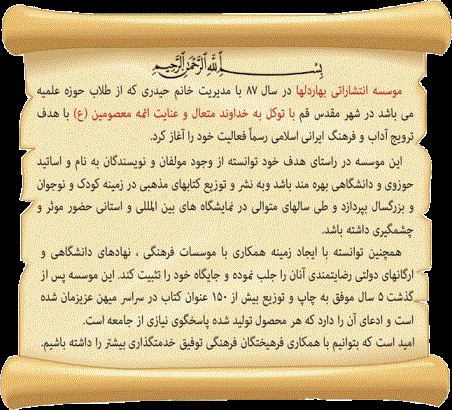 بسم الله الرحمن الرحیم
موسسه انتشاراتی بهاردلها در سال ۸۷ با مدیریت خانم حیدری که از طلاب حوزه علمیه
می باشد در شهر مقدس قم با توکل به خداوند متعال و عنایت ائمه معصومین (ع) با هدف
ترویج آداب و فرهنگ ایرانی اسلامی رسماً فعالیت خود را آغاز کرد.
این موسسه در راستای هدف خود توانسته از وجود مولفان و نویسندگان به نام و اساتید
حوزوی و دانشگاهی بهره مند باشد وبه نشر و توزیع کتابهای مذهبی در زمینه کودک و نوجوان
و بزرگسال بپردازد و طی سالهای متوالی در نمایشگاه های بین المللی و استانی حضور موثر و
چشمگیری داشته باشد.
همچنین توانسته با ایجاد زمینه همکاری با موسسات فرهنگی ، نهادهای دانشگاهی و
ارگانهای دولتی رضایتمندی آنان را جلب نموده و جایگاه خود را تثبیت کند. این موسسه پس از
گذشت ۵ سال موفق به چاپ و توزیع بیش از ۱۵۰ عنوان کتاب در سراسر میهن عزیزمان شده
است و ادعای آن را دارد که هر محصول تولید شده پاسخگوی نیازی از جامعه است.
امید است که بتوانیم با همکاری فرهیختگان فرهنگی توفیق خدمتگذاری بیشتر را داشته باشیم.